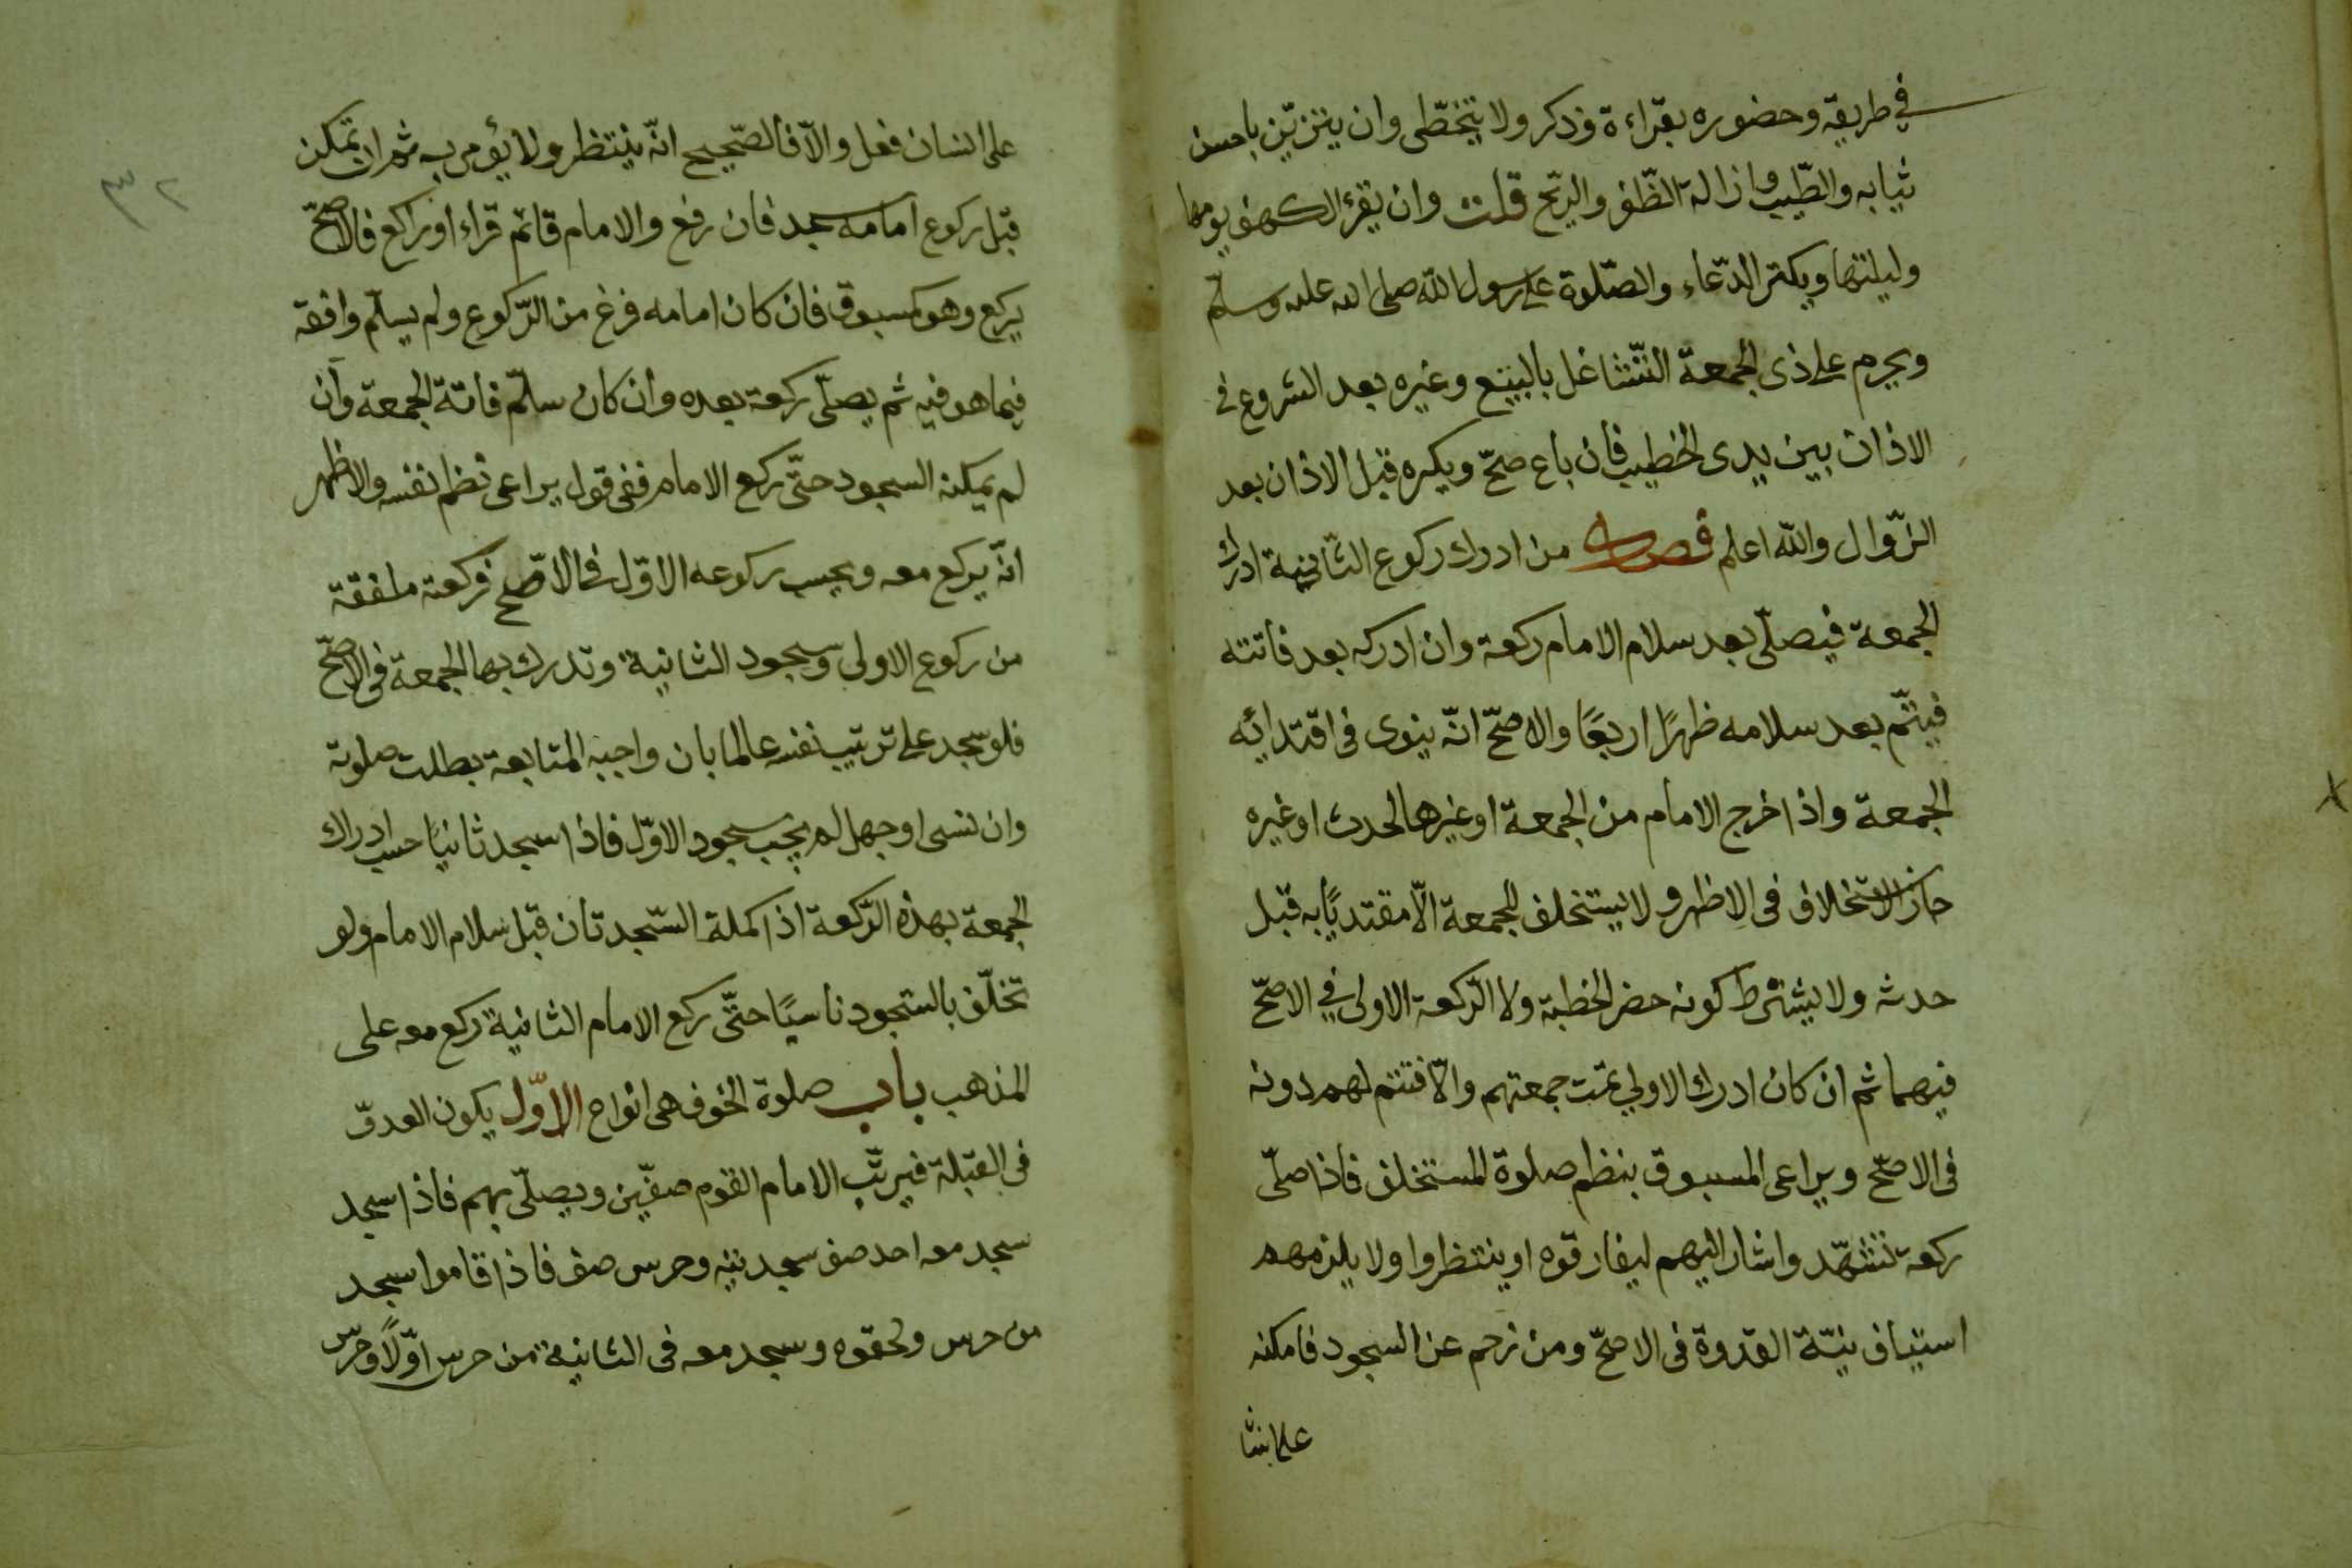 في طريقه وحضوره بقراءة وذكر ولا يتخطى وان يتزيّن باحسن
ثيابه والطّيب وازالة الظّفر والرّيح قلت وان يقرء الكهف يومها
وليلتها ويكثر الدّعاء والصّلوة على رسول الله صلى الله عليه وسلّم
ويحرم على ذى الجمعة التّشاغل بالبيع وغيره بعد الشروع فى
الاذان بين يدى الخطيب فان باع صحّ ويكره قبل الاذان بعد
الزّوال والله اعلم فصل من ادرك ركوع الثّانية ادرك
الجمعة فيصلّى بعد سلام الامام ركعة وان ادركه بعد فاتته
فيتمّ بعد سلامه ظهرًا اربعًا والاصحّ انّه ينوى فى اقتدائه
الجمعة واذا خرج الامام من الجمعة او غيرها لحدث او غيره
جاز الاستخلاف فى الاظهر ولا يستخلف للجمعة الّا مقتديًا به قبل
حدثه ولا يشترط كونه حضر الخطبة ولا الرّكعة الاولى في الاصحّ
فيهما ثم ان كان ادرك الاولي تمّت جمعتهم والّا فتتم لهم دونه
فى الاصحّ ويراعى المسبوق بنظم صلوة المستخلف فاذا صلّى
ركعة تشهّد واشار اليهم ليفارقوه او ينتظروا ولا يلزمهم
استيناف نيّة القدوة فى الاصحّ ومن زحم عن السجود فامكنه
على انسا
٣٢
على انسان فعل والّا فالصّحيح انّه ينتظر ولا يؤمى به ثم ان تمكن
قبل ركوع امامه سجد فان رفع والامام قائم قراء او راكع فالاصحّ
يركع وهو كمسبوق فان كان امامه فرغ من الرّكوع ولم يسلّم وافقه
فيما هو فيه ثم يصلّى ركعة بعده وان كان سلّم فاتة الجمعة وان
لم يمكنه السجود حتّى ركع الامام ففى قول يراعى نظم نفسه والاظهر
انّه يركع معه ويحسب ركوعه الاوّل فى الاصّح فركعته ملفقة
من ركوع الاولى وسجود الثانية وتدرك بها الجمعة فى الاصحّ
فلو سجد على ترتيب نفسه عالما بان واجبه المتابعة بطلت صلوته
وان نسى او جهل لم يحسب سجود الاوّل فاذا سجد ثانيًا حسب ادراك
الجمعة بهذه الرّكعة اذا كملة السّجدتان قبل سلام الامام ولو
تخلّف بالسّجود ناسيًا حتّى ركع الامام الثانية ركع معه على
المذهب باب صلوة الخوف هى انواع الاوّل يكون العدوّ
فى القبلة فيرتّب الامام القوم صفّين ويصلّى بهم فاذا سجد
سجد معه احد صف سجدتيه وحرس صف فاذا قاموا سجد
من حرس ولحقوه وسجد معه فى الثانية من حرس اوّلًا وحرس